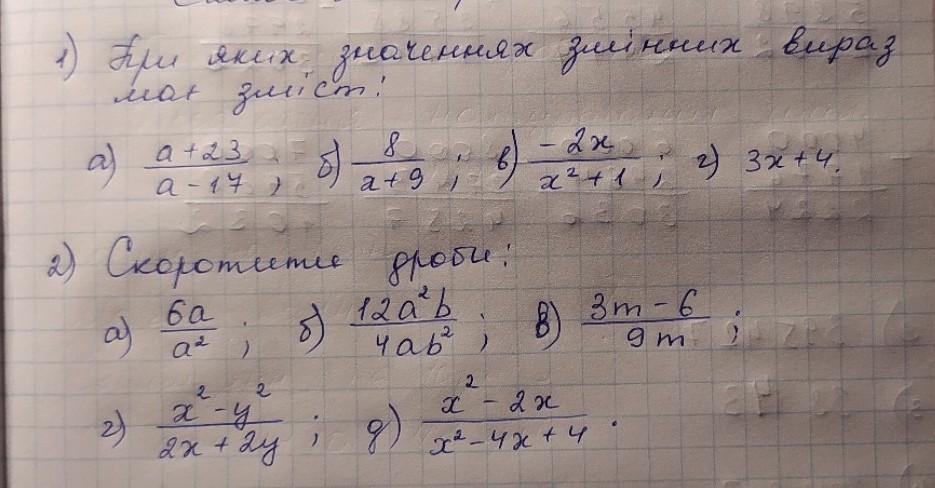 1) При яких значеннях змінних вираз
має зміст:
а) (a+23)/(a-17); б) 8/(x+9); в) (-2x)/(x²+1); г) 3x+4.
2) Скоротити дроби:
а) 6a/a²; б) 12a²b/4ab²; в) (3m-6)/9m;
г) (x²-y²)/(2x+2y); д) (x²-2x)/(x²-4x+4).